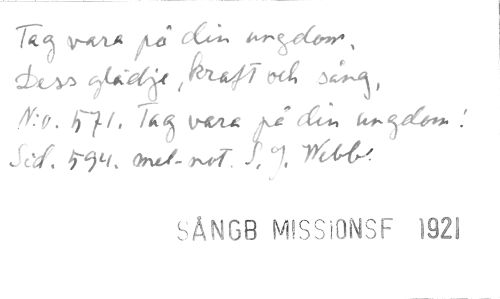 Tag vara på din ungdom,
Dess glädje, kraft och sång,
N:o. 571. Tag vara på din ungdom!
Sid. 594. mel-not. S. J. Webb.
SÅNGB MISSIONSF 1921